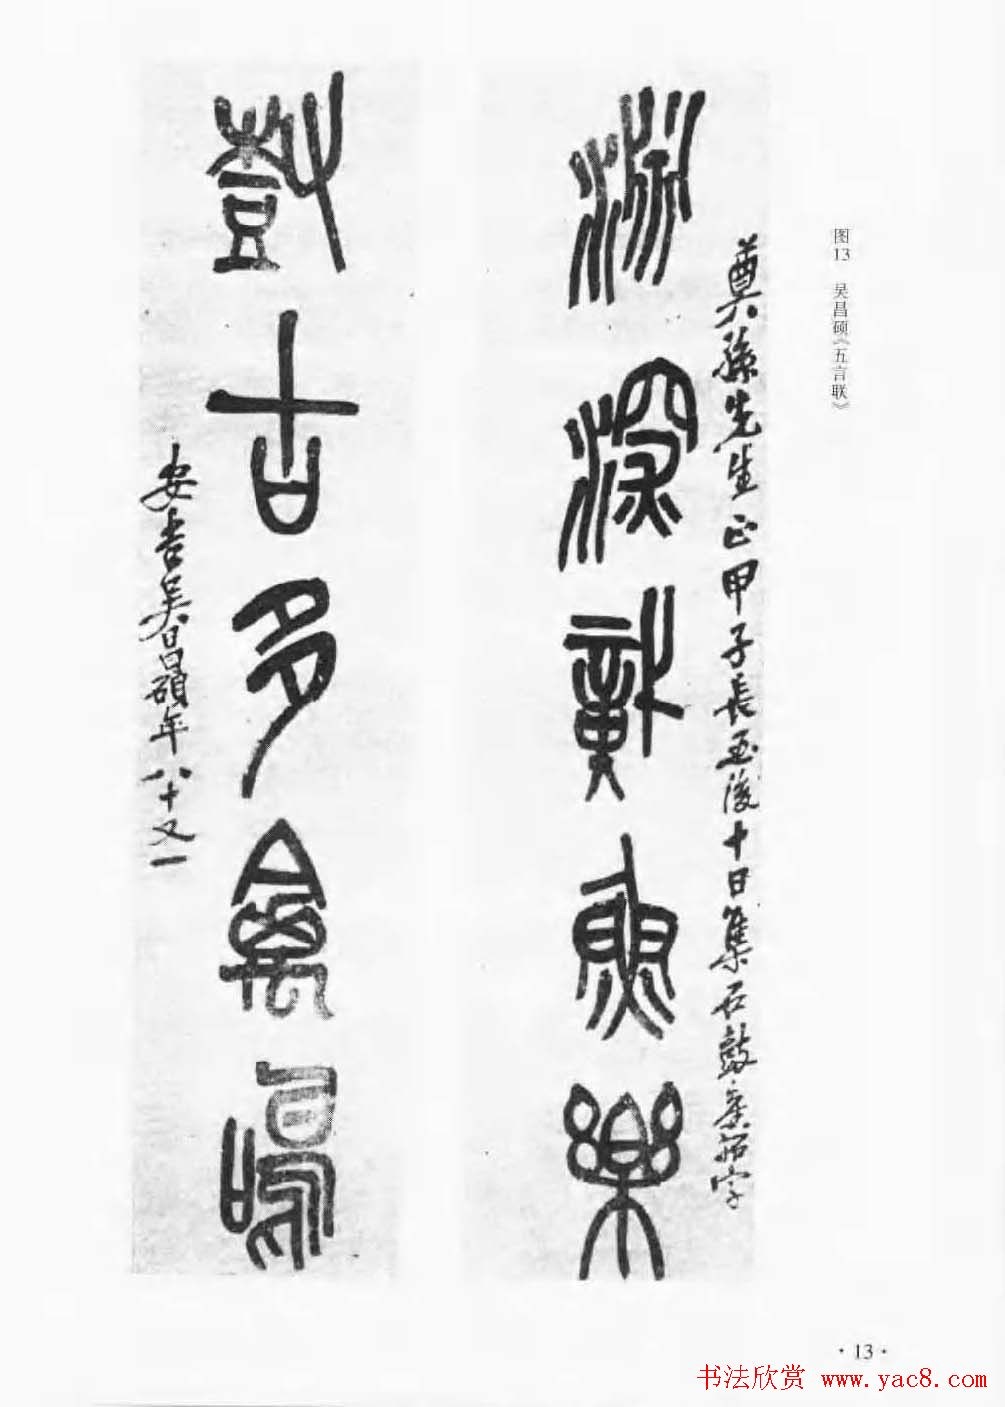 图13 吴昌硕《五言联》
奠孫先生正甲子長至後十日集石鼓拓字
淵深識魚樂
尌古多禽鳴
安吉吳昌碩年八十又一
·13·
书法欣赏 www.yac8.com